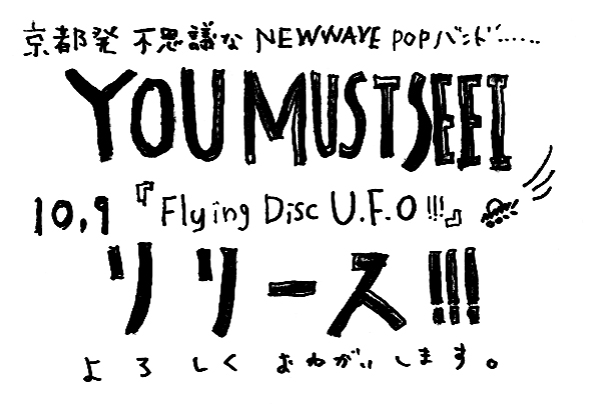 京都発 不思議な NEWWAVE POPバンド......
YOU MUST SEE I
10,9 『Flying Disc U.F.O!!!』
リリース!!!
よろしくおねがいします。